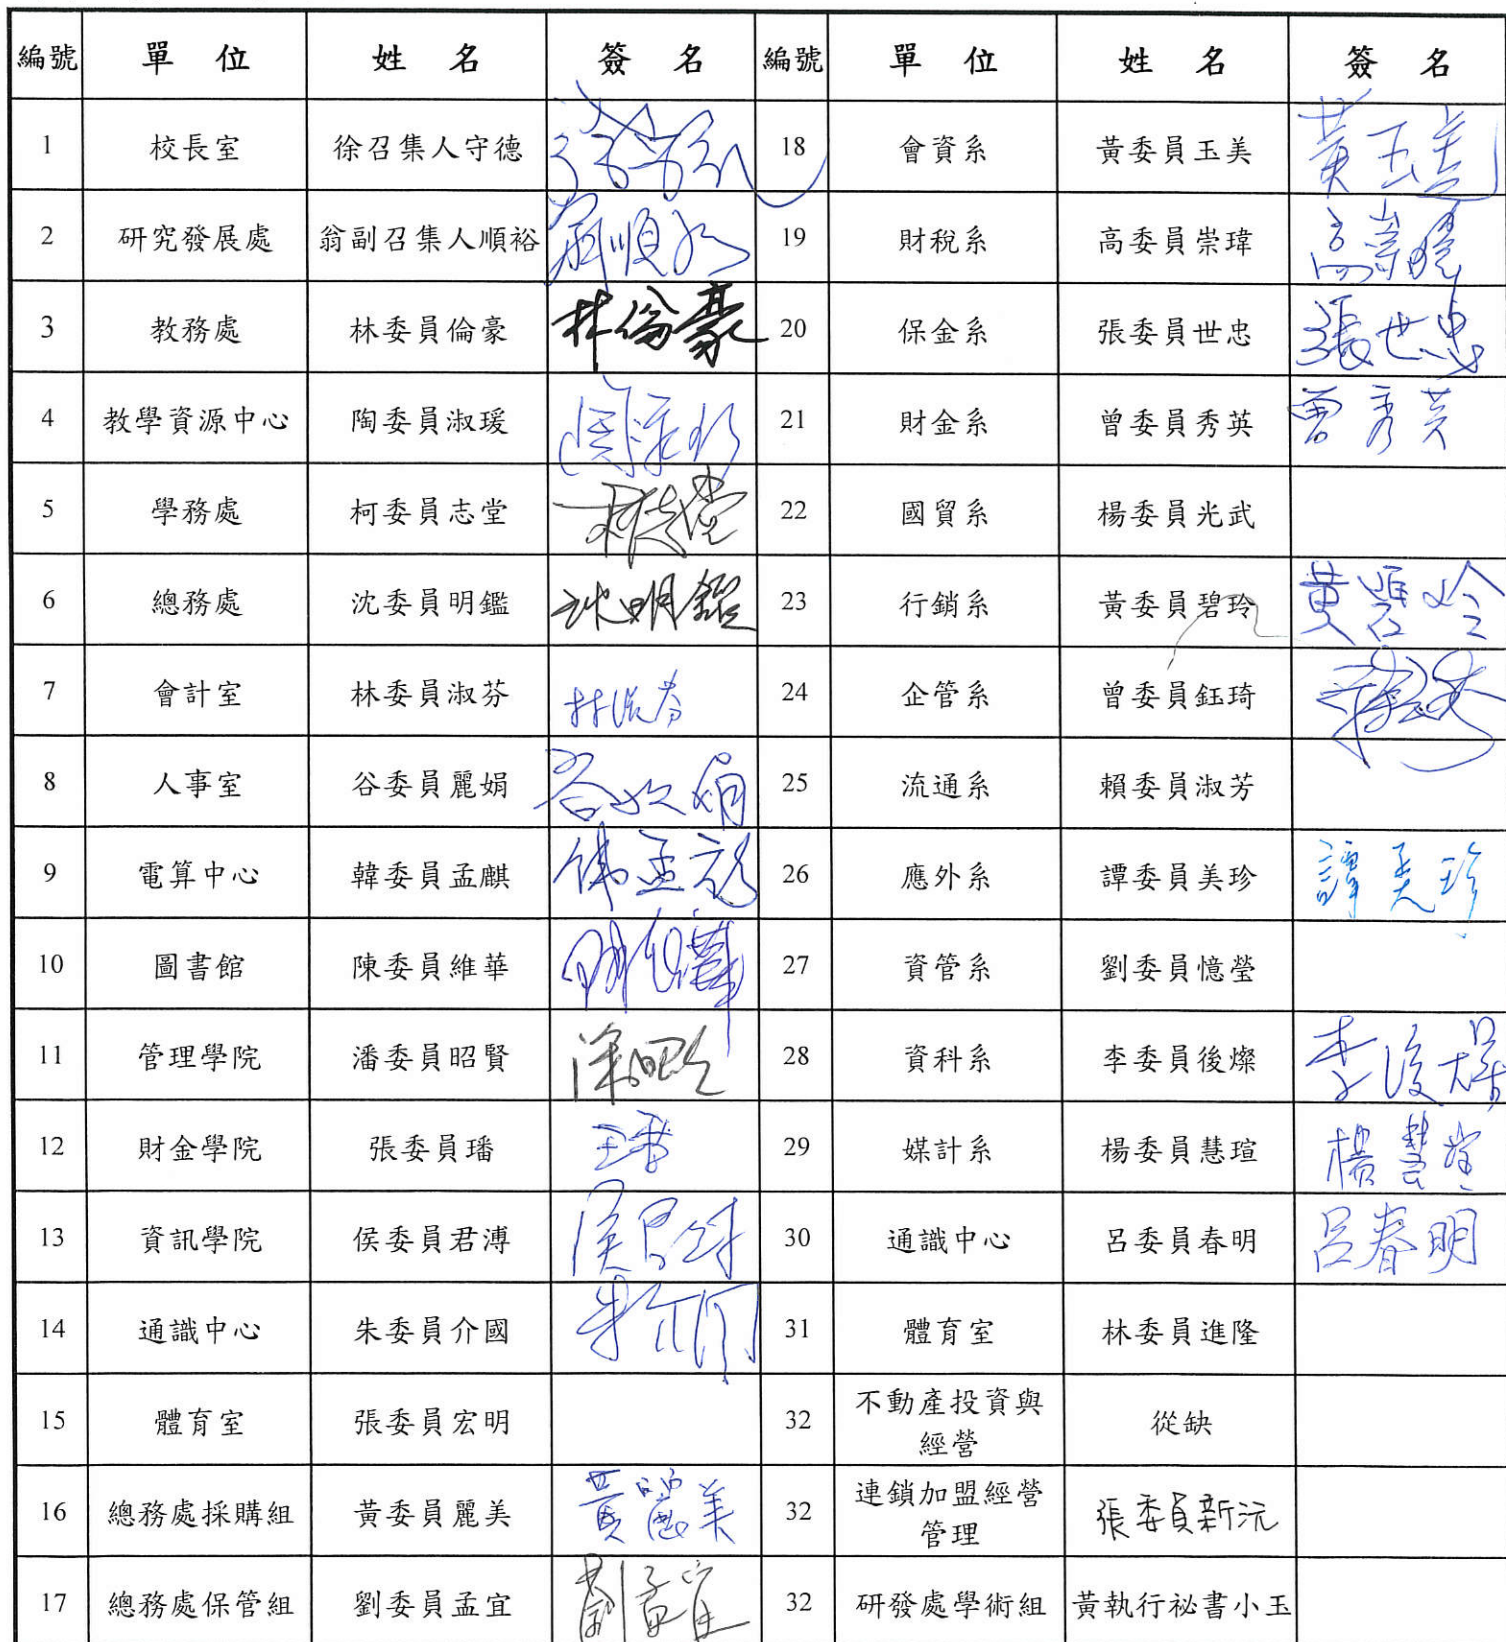 編號 單位 姓名 簽名 編號 單位 姓名 簽名
1 校長室 徐召集人守德 18 會資系 黃委員玉美 黃玉美
2 研究發展處 翁副召集人順裕 翁順裕 19 財稅系 高委員崇瑋 高崇瑋
3 教務處 林委員倫豪 林倫豪 20 保金系 張委員世忠 張世忠
4 教學資源中心 陶委員淑瑗 21 財金系 曾委員秀英 曾秀英
5 學務處 柯委員志堂 柯志堂 22 國貿系 楊委員光武
6 總務處 沈委員明鑑 沈明鑑 23 行銷系 黃委員碧玲 黃碧玲
7 會計室 林委員淑芬 林淑芬 24 企管系 曾委員鈺琦
8 人事室 谷委員麗娟 谷麗娟 25 流通系 賴委員淑芳
9 電算中心 韓委員孟麒 韓孟麒 26 應外系 譚委員美珍 譚美珍
10 圖書館 陳委員維華 陳維華 27 資管系 劉委員憶瑩
11 管理學院 潘委員昭賢 28 資科系 李委員後燦 李後燦
12 財金學院 張委員璠 29 媒計系 楊委員慧瑄 楊慧瑄
13 資訊學院 侯委員君溥 侯君溥 30 通識中心 呂委員春明 呂春明
14 通識中心 朱委員介國 朱介國 31 體育室 林委員進隆
15 體育室 張委員宏明 32 不動產投資與
經營 從缺
16 總務處採購組 黃委員麗美 黃麗美 32 連鎖加盟經營
管理 張委員新沅
17 總務處保管組 劉委員孟宜 劉孟宜 32 研發處學術組 黃執行祕書小玉